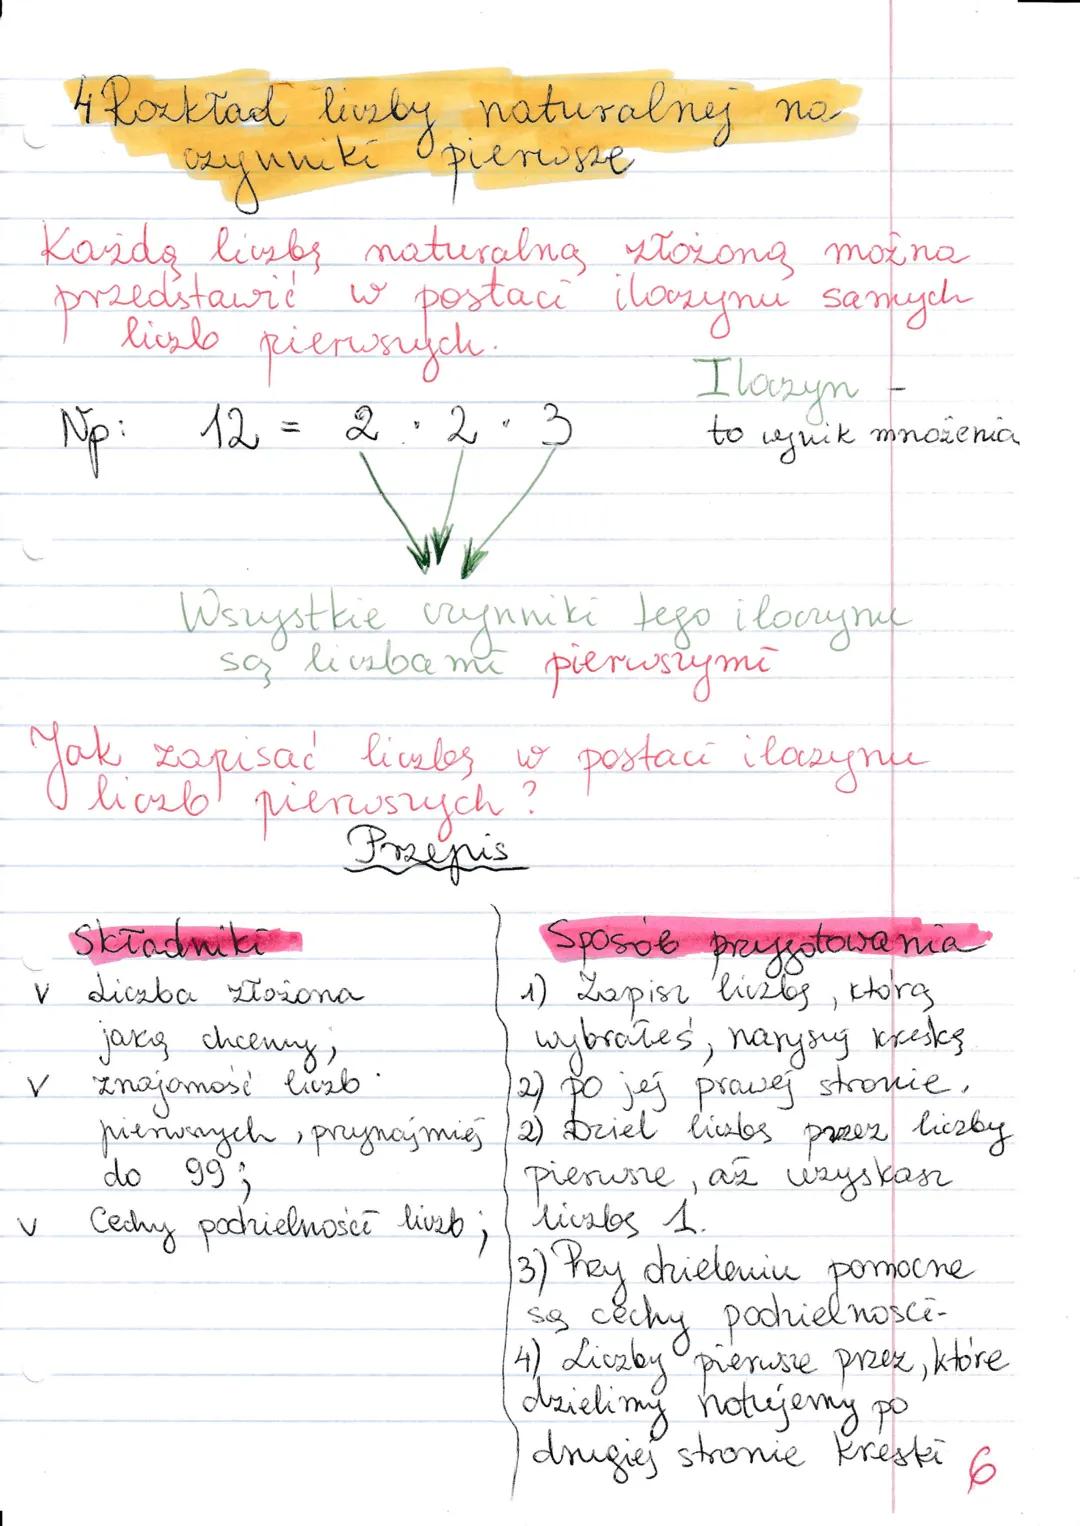 4 Rozkład liczby naturalnej na
czynniki pierwsze
Każdą liczbę naturalną złożoną można
przedstawić w postaci iloczynu samych
liczb pierwszych.
Iloczyn -
to wynik mnożenia
Np: 12 = 2 · 2 · 3
Wszystkie czynniki tego iloczynu
są liczbami pierwszymi
Jak zapisać liczbę w postaci iloczynu
liczb pierwszych?
Przepis
Składniki
v Liczba złożona
jaką chcemy;
v znajomość liczb
pierwszych, przynajmniej
do 99;
v Cechy podzielności liczb;
Sposób przygotowania
1) Zapisz liczbę, którą
wybrałeś, narysuj kreskę
2) po jej prawej stronie.
2) Dziel liczbę przez liczby
pierwsze, aż uzyskasz
liczbę 1.
3) Przy dzieleniu pomocne
są cechy podzielności-
4) Liczby pierwsze przez, które
dzielimy notujemy po
drugiej stronie kreski
6